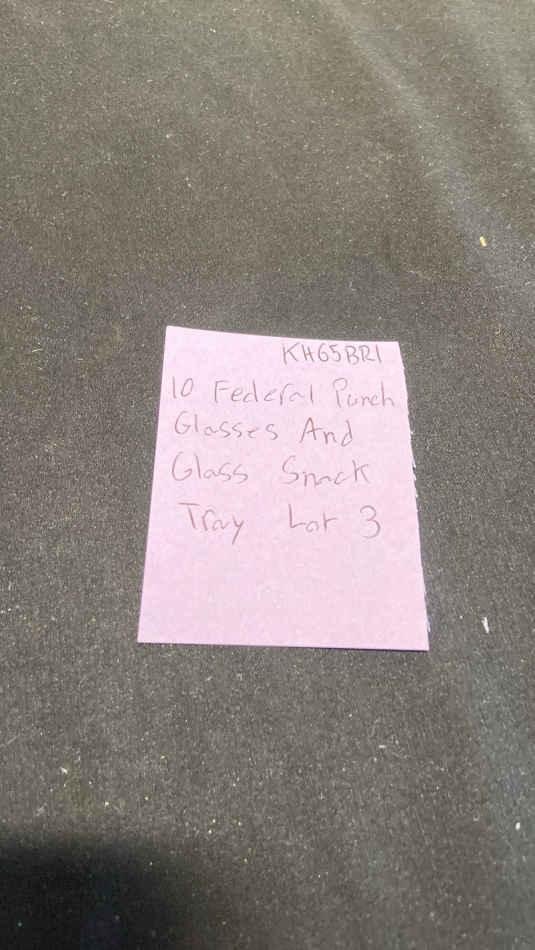 KH65BR1
10 Federal Punch
Glasses And
Glass Snack
Tray Lot 3